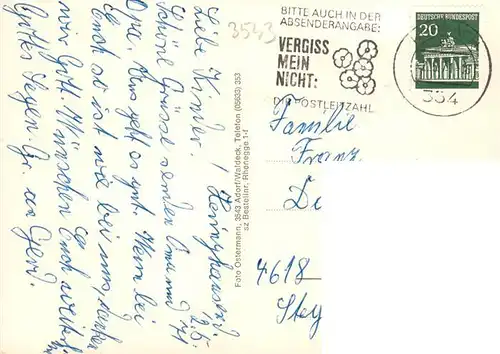 3543
BITTE AUCH IN DER
ABSENDERANGABE:
VERGISS
MEIN
NICHT:
DIE POSTLEITZAHL
DEUTSCHE BUNDESPOST
20
354
Heringhausen, d.
2.5. 71
Liebe Kinder!
Schöne Grüsse senden Oma und
Opa. Uns geht es gut. Wenn bei
Euch so ist wie bei uns,
wir Gott. Wünschen Euch weiter
Gottes Segen. Gr. an Gerd.
Foto Ostermann, 3543 Adorf/Waldeck, Telefon (05633) 353
sz Bestellnr. Rhenegge 1-f
Familie
Franz
Di
4618